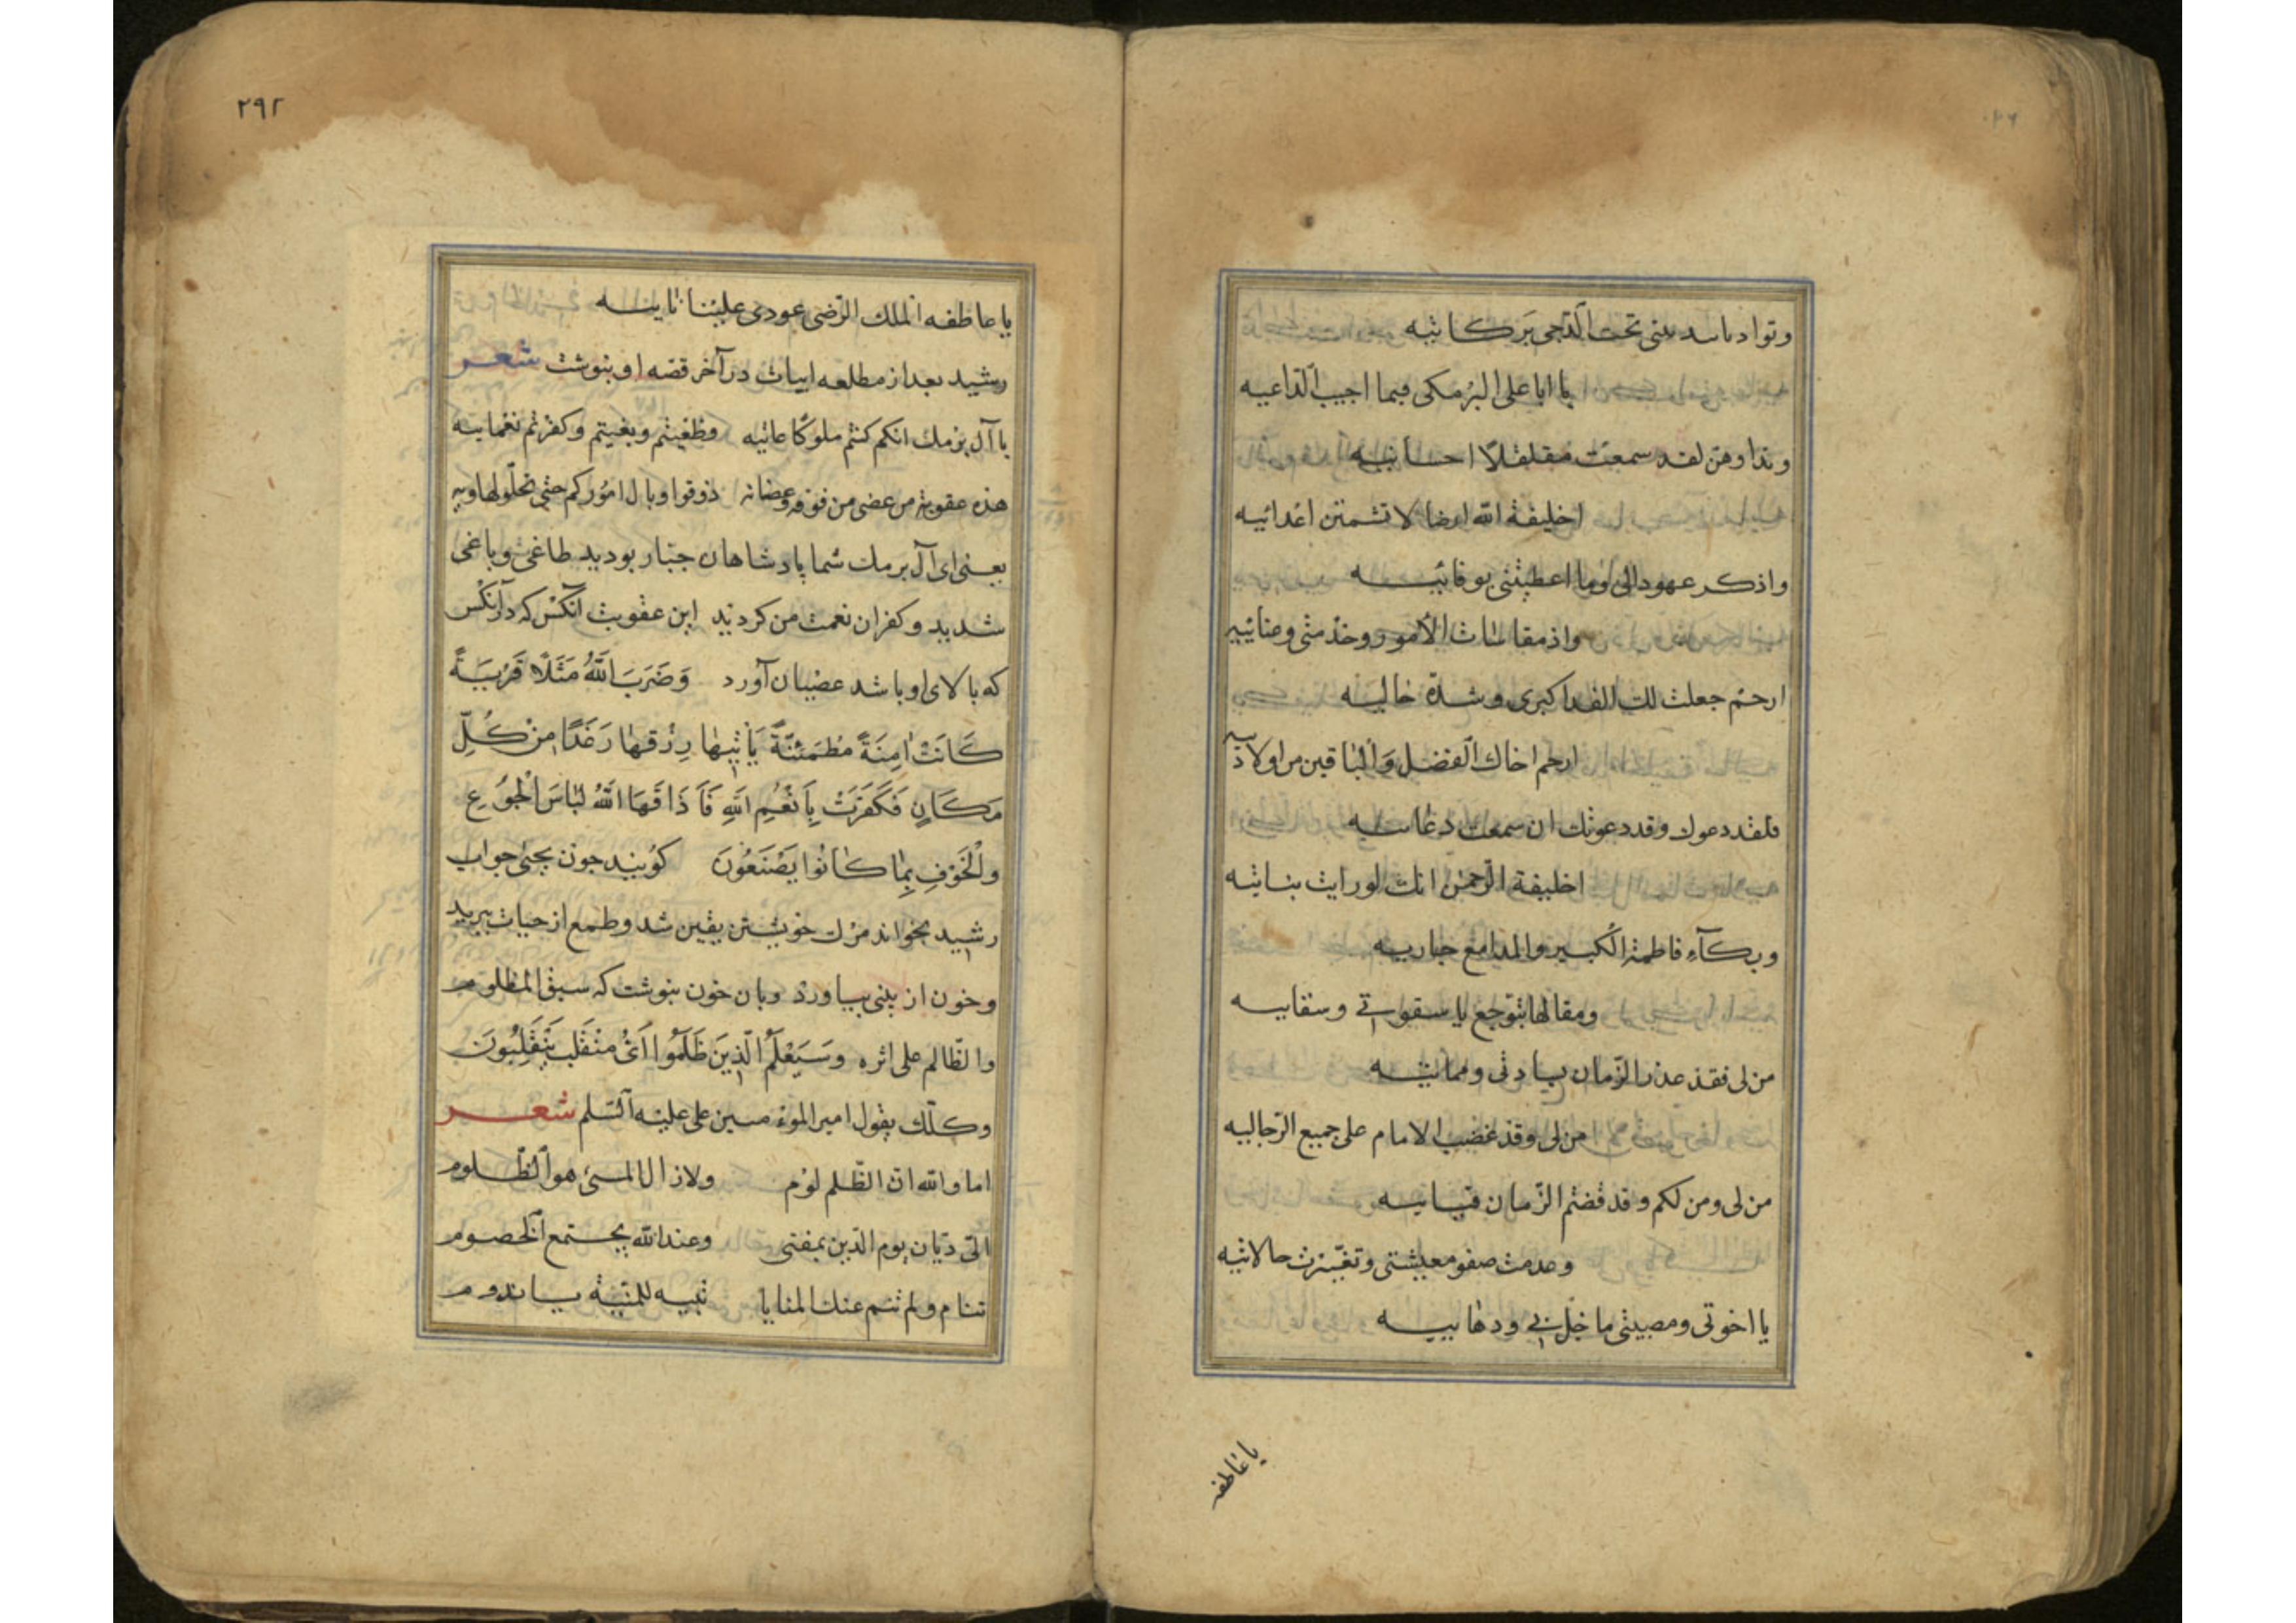 وتوادبا سدبنی تحت الدّجی بَرکاتیه
یا ابا علی البرُمکی فیما اجیب الدّاعیه
ونداوهنّ لقد سمعت مقلقلًا احسانیه
اخلیفة الله ارضا لا تشمتن اعدائیه
واذکر عهودالی وما اعطیتنی بوفائیه
واذ مقاسات الأمور وخدمتی وعنائیه
ارحم جعلت لك الفدا کبری وشدّة خالیه
ارحم اخاك الفضل والباقین من اولادیه
فلقد دعوك وقد دعوتك ان سمعت دعائیه
اخلیفة الرّحمن انك لو رایت بناتیه
وبكآء فاطمة الکبیر والمدامع جاریه
ومقالها بتوجع یا سقوتی وسقابیه
من لی فقد عذر الزّمان بسادتی ومماتیه
من لی وقد غضب الامام علی جمیع الرجالیه
من لی ومن لکم وقد قصتم الزّمان فیاییه
وعدمت صفو معیشتی وتغیّرت حالاتیه
یا اخوتی ومصیبتی ما حل بی ودهابیه
یا عاطفه
٢٩٢
یا عاطفه الملك الرّضی عودی علینا ثانیه
رشید بعد از مطلعه ابیات در آخر قصه او بنوشت شعر
یا آل برمك انکم کنتم ملوکًا عاتیه وطغیتم وبغیتم وکفرتم نعمایـه
هذه عقوبة من عصی من فوقه وعصانه ذوقوا وبال اموُرکم حتی تحلّوا هاویه
یعنی ای آل برمك شما پادشاهان جبّار بودید طاغی وباغی
شدید وکفران نعمت من کردید این عقوبت آنکس که در آنکس
که بالای او باشد عصیان آورد وَضَرَبَ اللّٰهُ مَثَلًا قَرْیَةً
کَانَتْ اٰمِنَةً مُطْمَئِنَّةً یَأْتِیهٰا رِزْقهٰا رَغَدًا مِنْ کُلِّ
مَکَانٍ فَکَفَرَتْ بِاَنْعُمِ اللّٰهِ فَاَذَاقَهَا اللّٰهُ لِبٰاسَ الْجُوعِ
والْخَوْفِ بِمٰا کٰانُوا یَصْنَعُونَ کویند جون یحیی جواب
رشید بخواند مرك خویشتن یقین شد وطمع از حیات ببرید
وخون از بینی بیاورد وبان خون بنوشت که سبق المظلوم
والظّالم علی اثره وَسَیَعْلَمُ الّذِینَ ظَلَمُوا اَیَّ مُنْقَلَبٍ یَنْقَلِبُونَ
وکذلك یقول امیر المؤمنین علی علیه السّلم شعر
اما والله انّ الظّلم لوُم ولا زال المسیٔ هو الظّلوم
الیٰ دیّان یوم الدّین نمضی وعند الله یجتمع الخصوم
تنام ولم تنم عنك المنایا تنبیه للمنیّة یا ندوم